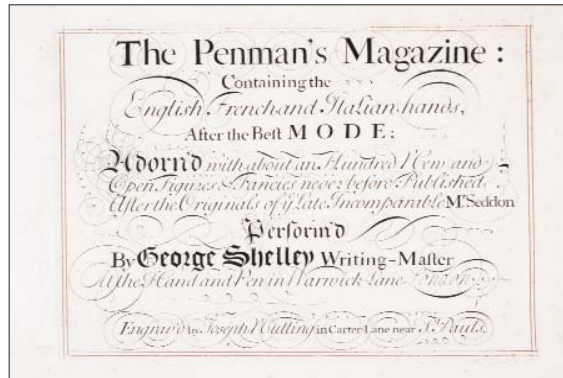 The Penman's Magazine:
Containing the
English French and Italian hands,
After the Beſt MODE;
Adorn'd with about an Hundred New and
Open Figures & Fancies never before Published.
After the Originals of yͤ Late Incomparable Mͬ Seddon
Perform'd
By George Shelley Writing-Maſter
At the Hand and Pen in Warwick Lane London
Engrav'd by Joseph Nutting in Carter Lane near Sͭ Pauls.